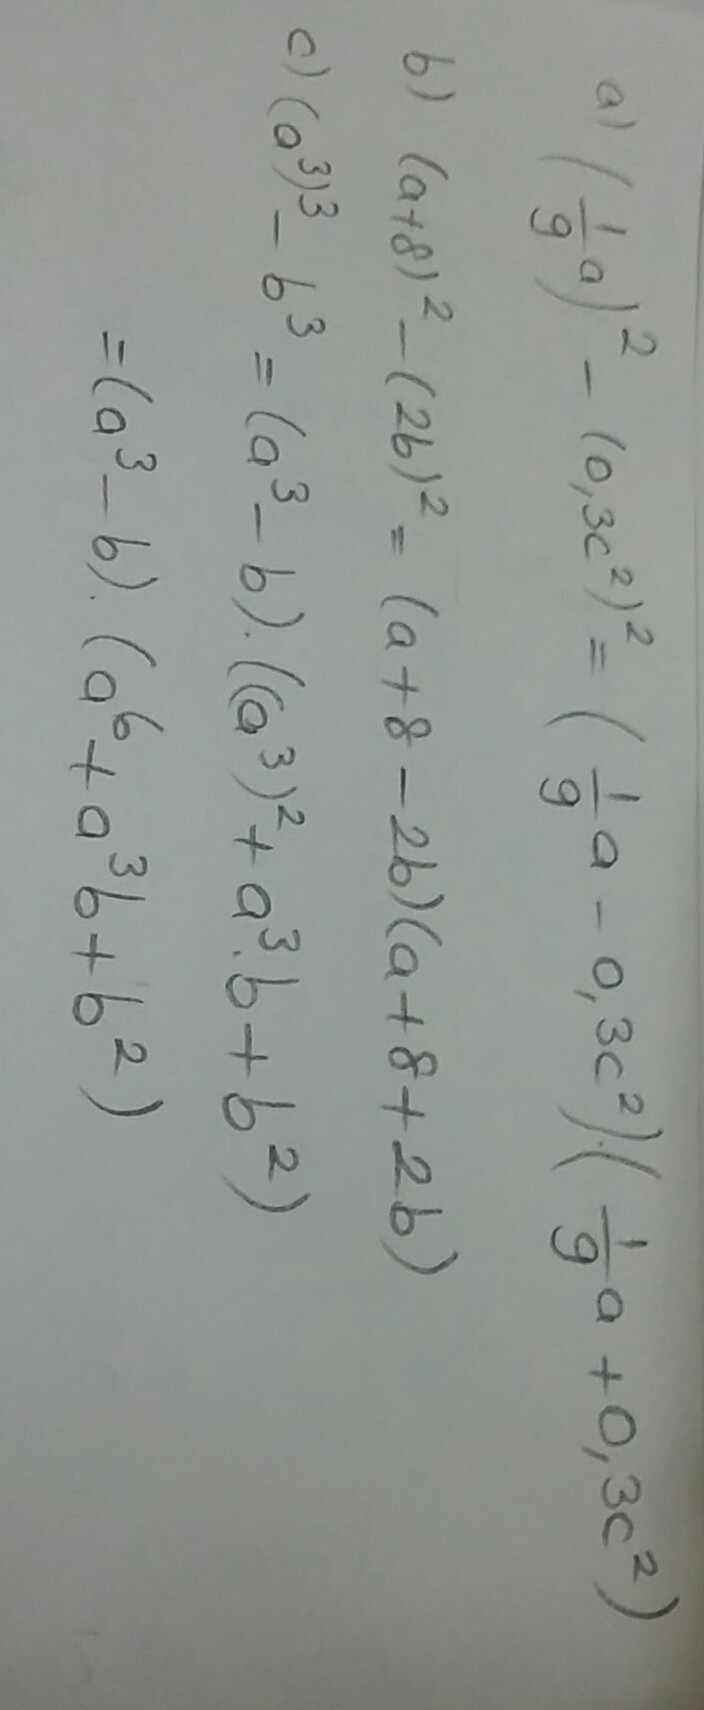 a) (1/9 a)² - (0,3c²)² = (1/9 a - 0,3c²)·(1/9 a + 0,3c²)
b) (a+8)² - (2b)² = (a+8-2b)(a+8+2b)
c) (a³)³ - b³ = (a³ - b)·((a³)² + a³·b + b²)
= (a³ - b)·(a⁶ + a³b + b²)